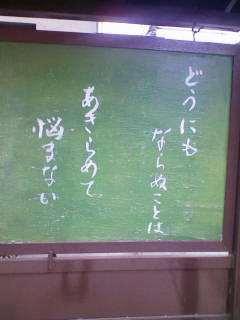 どうにも
ならぬことは
あきらめて
悩まなか